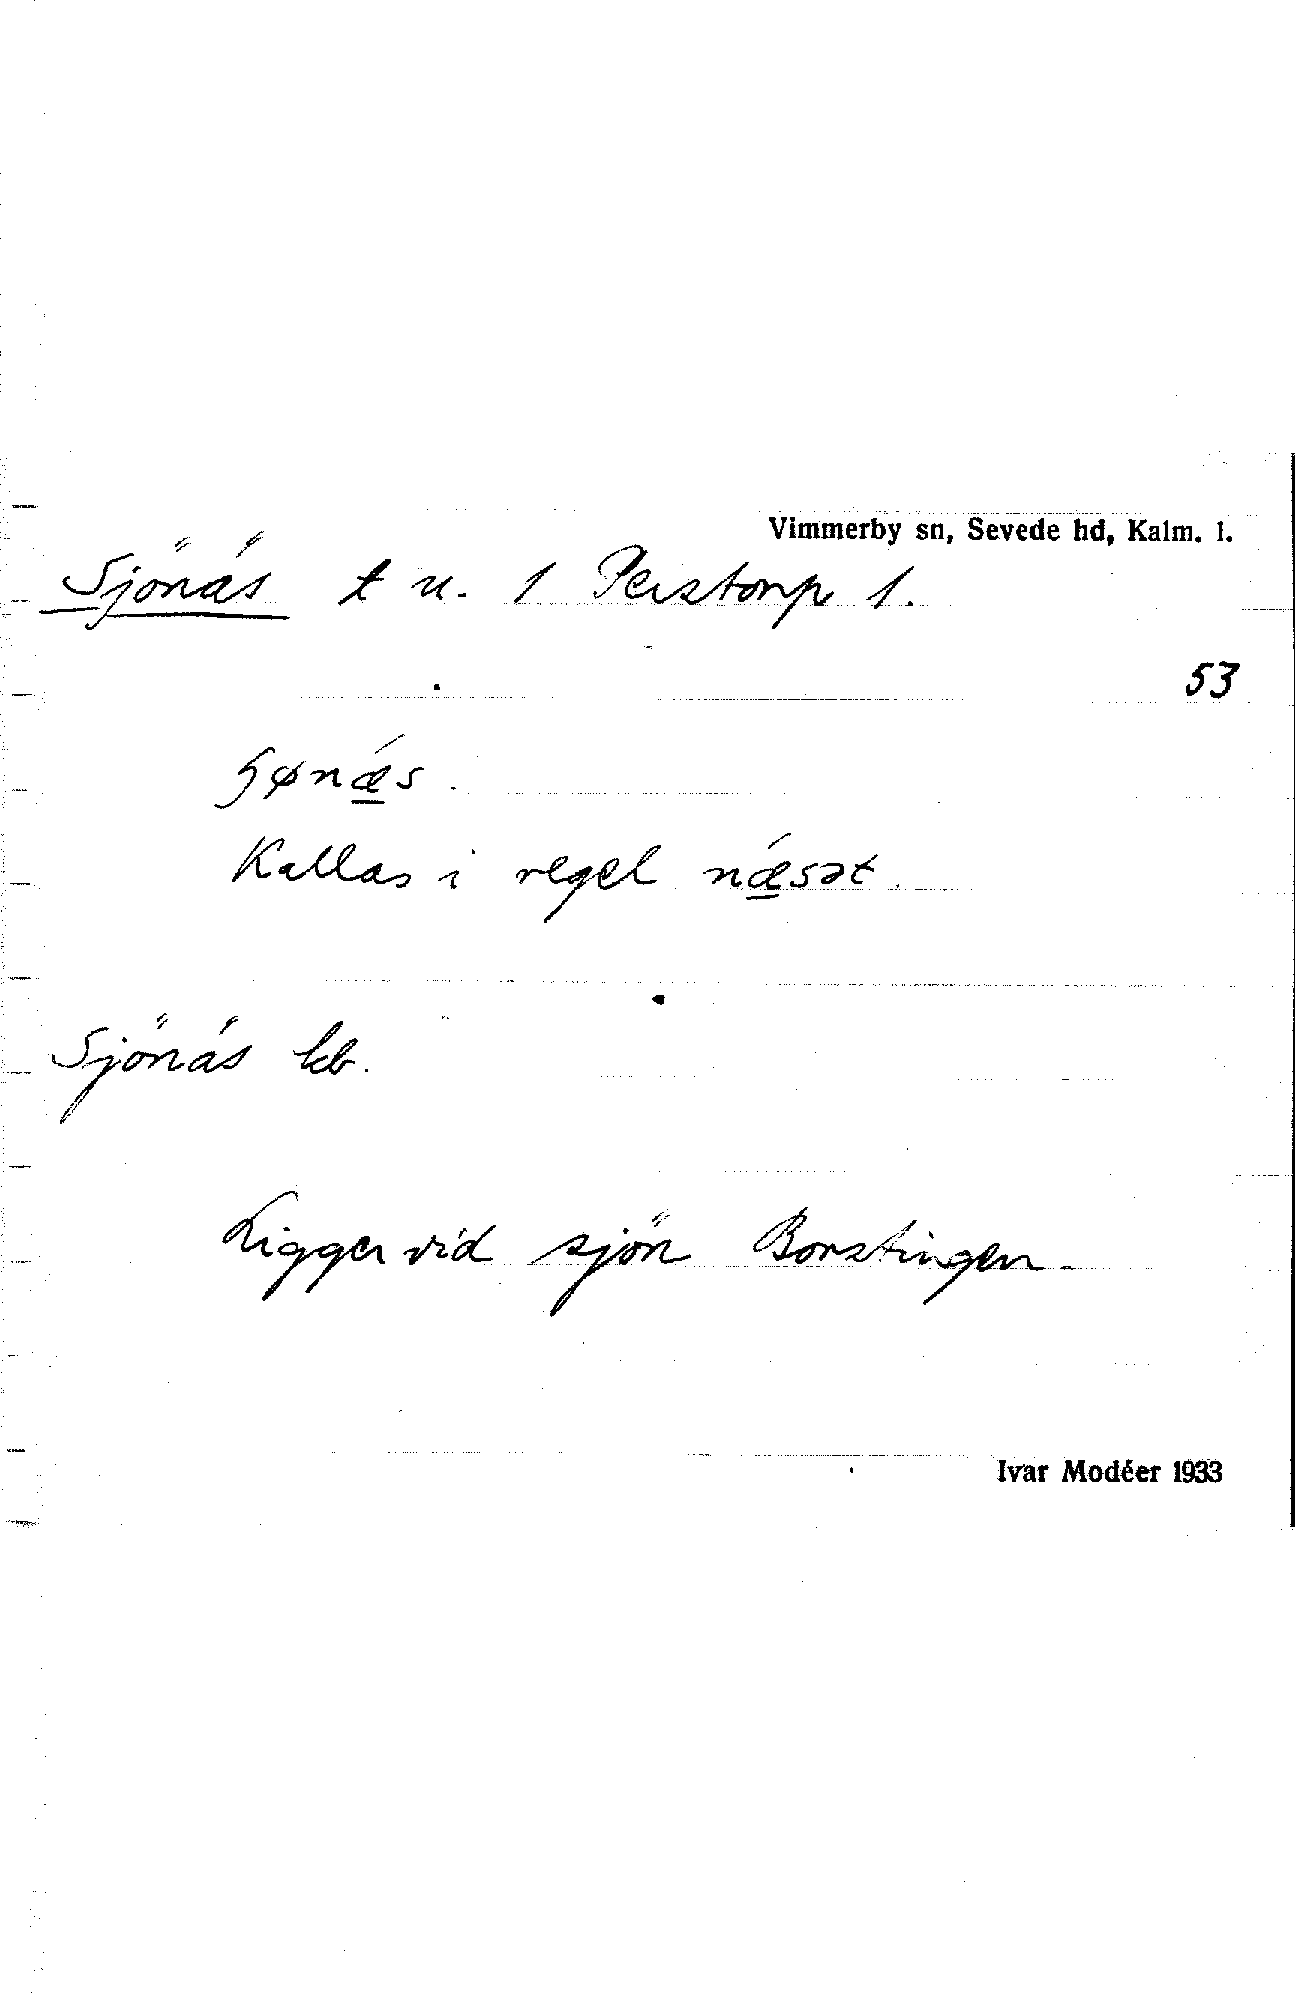 Vimmerby sn, Sevede hd, Kalm. l.
Sjönäs t u. 1 Perstorp 1.
53
ɧønǽs.
Kallas i regel nǽsət.
Sjönäs kb.
Ligger vid sjön Borstingen.
Ivar Modéer 1933